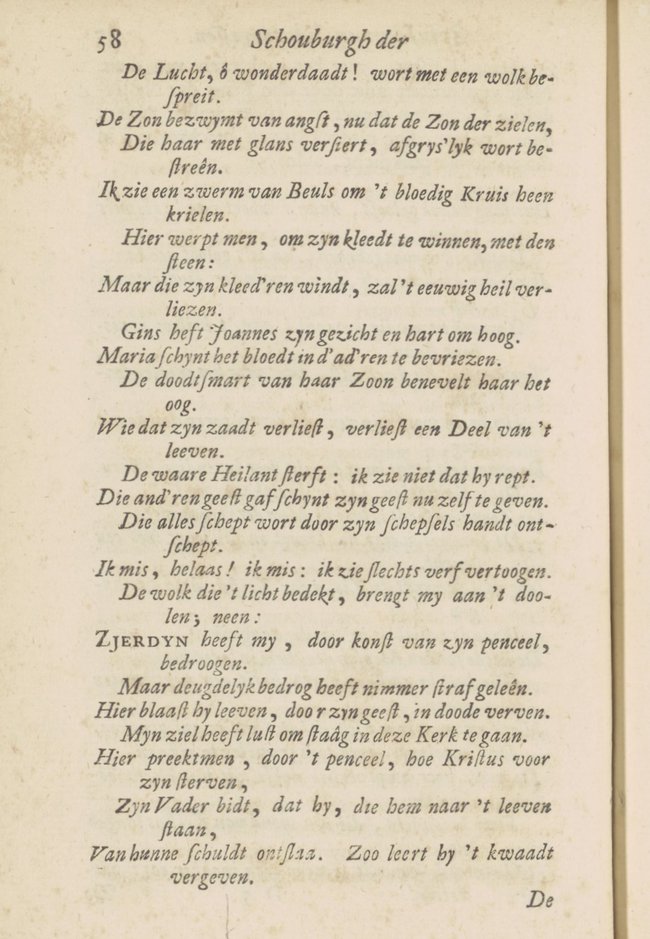 58 Schouburgh der
De Lucht, ô wonderdaadt! wort met een wolk be-
ſpreit.
De Zon bezwymt van angſt, nu dat de Zon der zielen,
Die haar met glans verſiert, afgrys'lyk wort be-
ſtreên.
Ik zie een zwerm van Beuls om 't bloedig Kruis heen
krielen.
Hier werpt men, om zyn kleedt te winnen, met den
ſteen:
Maar die zyn kleed'ren windt, zal 't eeuwig heil ver-
liezen.
Gins heft Joannes zyn gezicht en hart om hoog.
Maria ſchynt het bloedt in d'ad'ren te bevriezen.
De doodtſmart van haar Zoon benevelt haar het
oog.
Wie dat zyn zaadt verlieſt, verlieſt een Deel van 't
leeven.
De waare Heilant ſterft: ik zie niet dat hy rept.
Die and'ren geeſt gaf ſchynt zyn geeſt nu zelf te geven.
Die alles ſchept wort door zyn ſchepſels handt ont-
ſchept.
Ik mis, helaas! ik mis: ik zie ſlechts verf vertoogen.
De wolk die 't licht bedekt, brengt my aan 't doo-
len; neen:
ZJERDYN heeft my, door konſt van zyn penceel,
bedroogen.
Maar deugdelyk bedrog heeft nimmer ſtraf geleên.
Hier blaaſt hy leeven, door zyn geeſt, in doode verven.
Myn ziel heeft luſt om ſtaâg in deze Kerk te gaan.
Hier preekt men, door 't penceel, hoe Kriſtus voor
zyn ſterven,
Zyn Vader bidt, dat hy, die hem naar 't leeven
ſtaan,
Van hunne ſchuldt ontſlaa. Zoo leert hy 't kwaadt
vergeven.
De